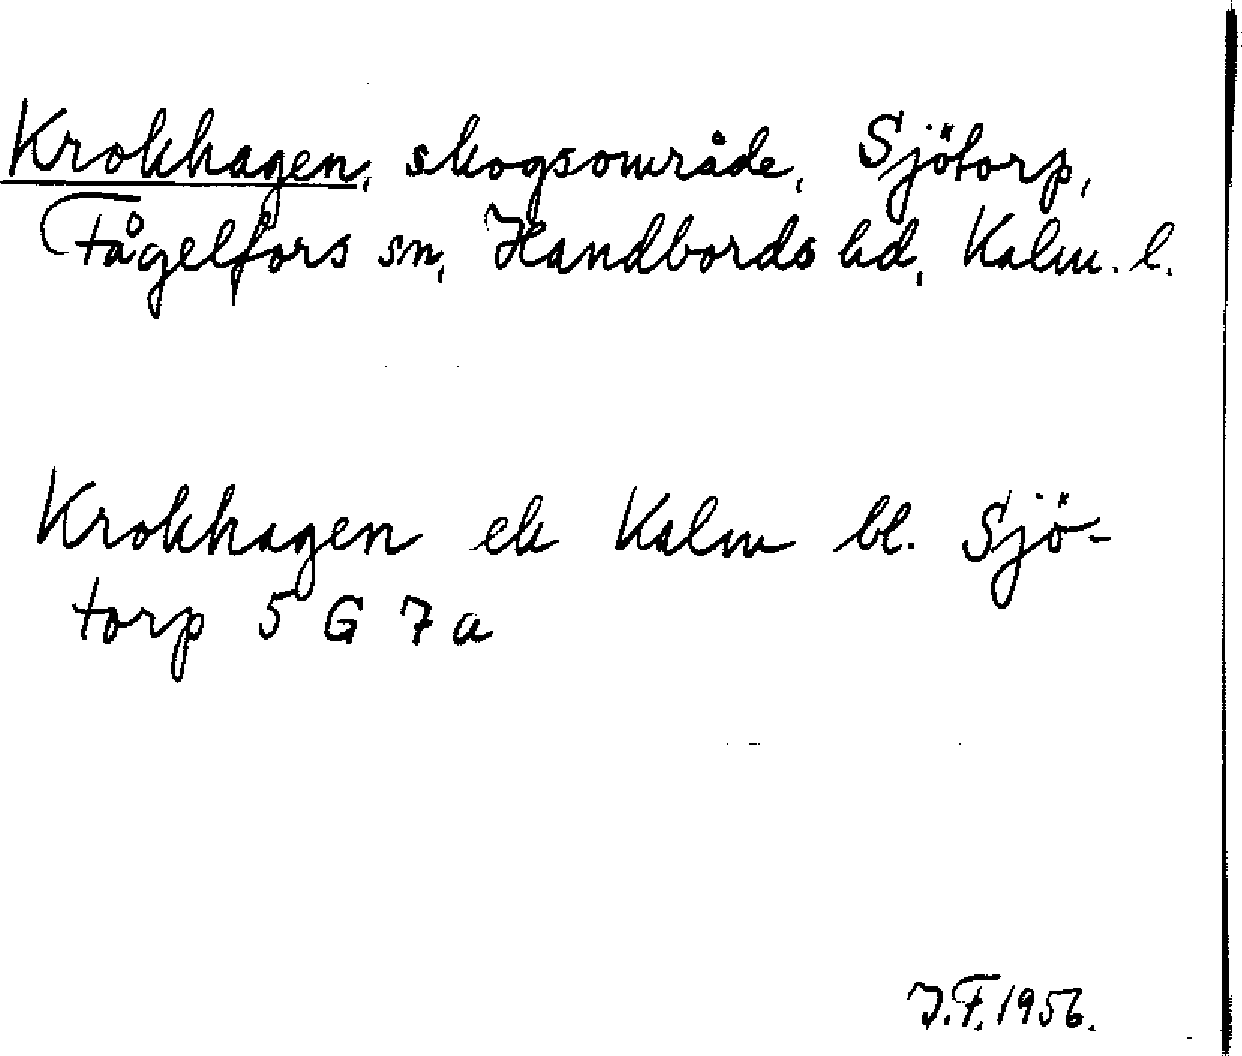 Krokhagen, skogsområde, Sjötorp,
Fågelfors sn, Handbords hd, Kalm. l.
Krokhagen ek Kalm bl. Sjö-
torp 5 G 7 a
J.F. 1956.